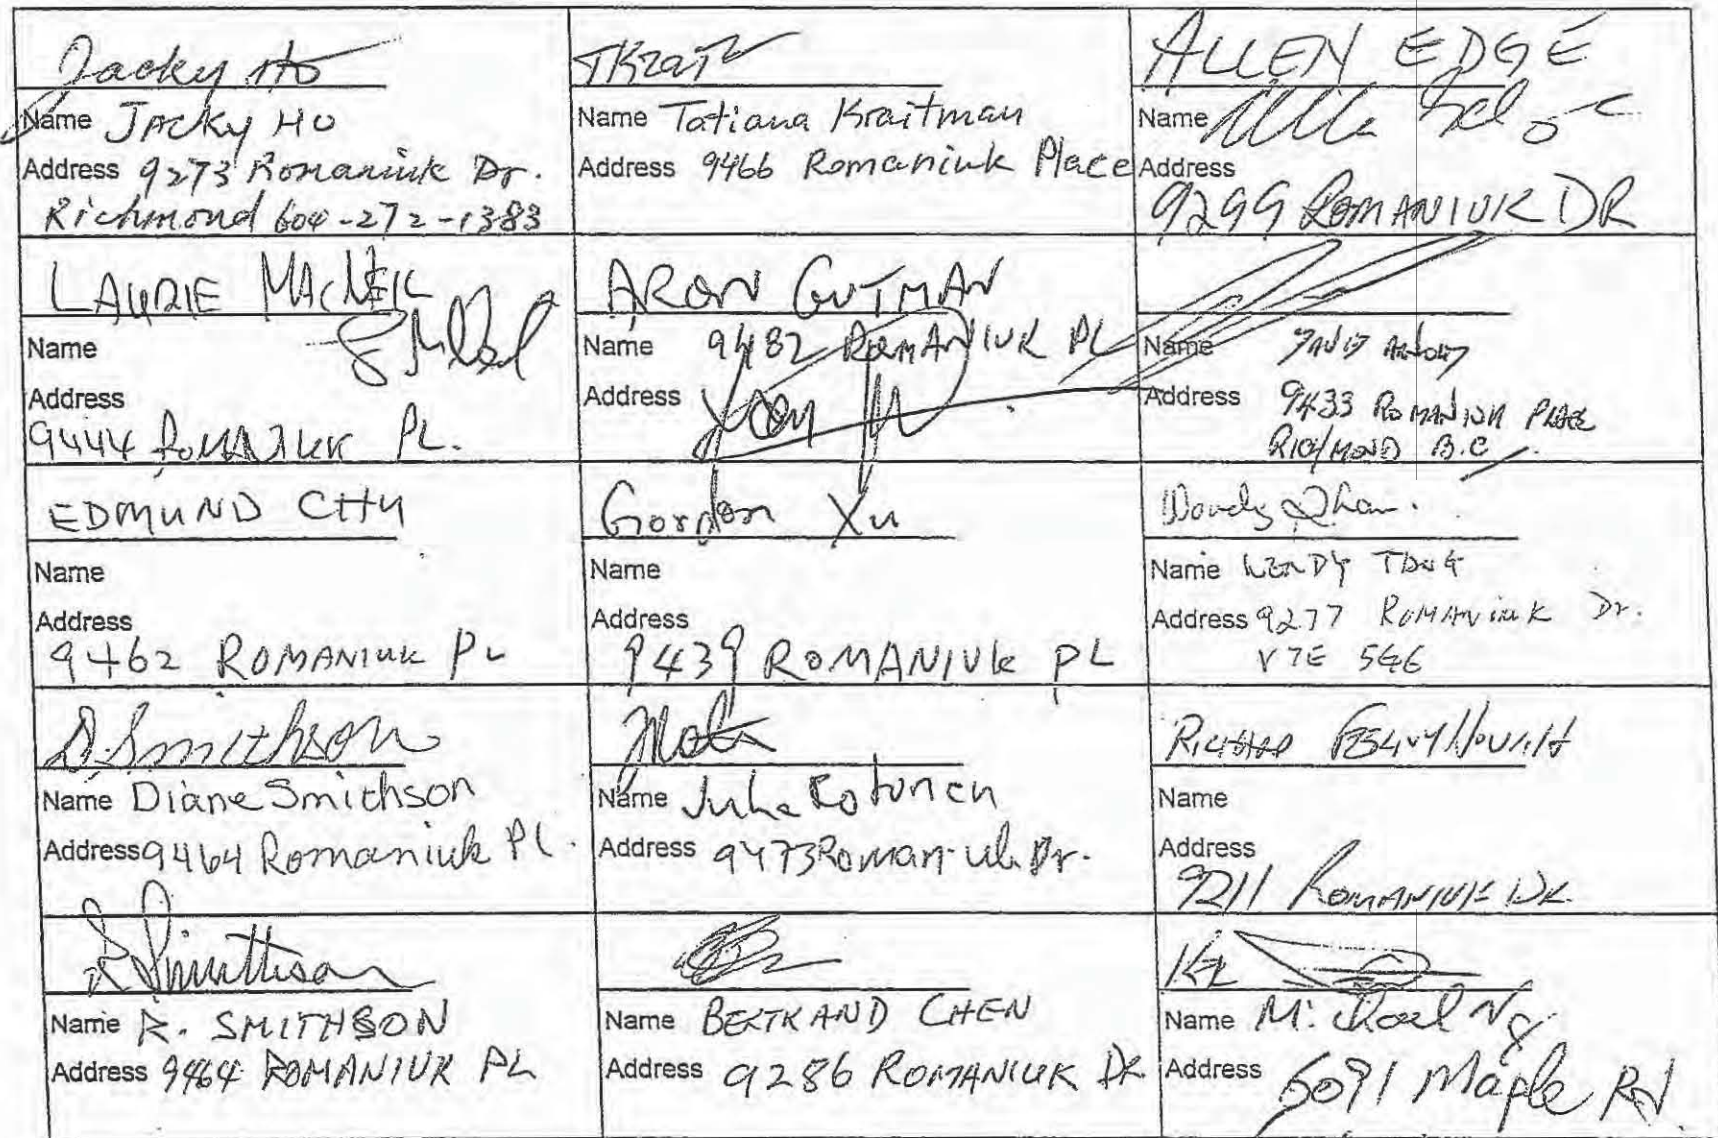 Jacky Ho
Name JACKY HO
Address 9273 Romaniuk Dr.
Richmond 604-272-1383
TKrait
Name Tatiana Kraitman
Address 9466 Romaniuk Place
ALLEN EDGE
Name
Address
9299 ROMANIUK DR
LAURIE MACNEIL
Name
Address
9444 ROMANIUK PL.
ARON GUTMAN
Name 9482 ROMANIUK PL
Address
Name
Address 9433 ROMANIUK PLACE
RICHMOND B.C
EDMUND CHU
Name
Address
9462 ROMANIUK PL
Gordon Xu
Name
Address
9439 ROMANIUK PL
Name WENDY
Address 9277 ROMANIUK Dr.
V7E 5G6
D. Smithson
Name Diane Smithson
Address 9464 Romaniuk Pl.
Name
Address 9473 Romaniuk Dr.
RICHARD
Name
Address
9211 ROMANIUK DR.
R Smithson
Name R. SMITHSON
Address 9464 ROMANIUK PL
Name BERTRAND CHEN
Address 9286 ROMANIUK DR
Name Michael Ng
Address 6091 Maple Rd